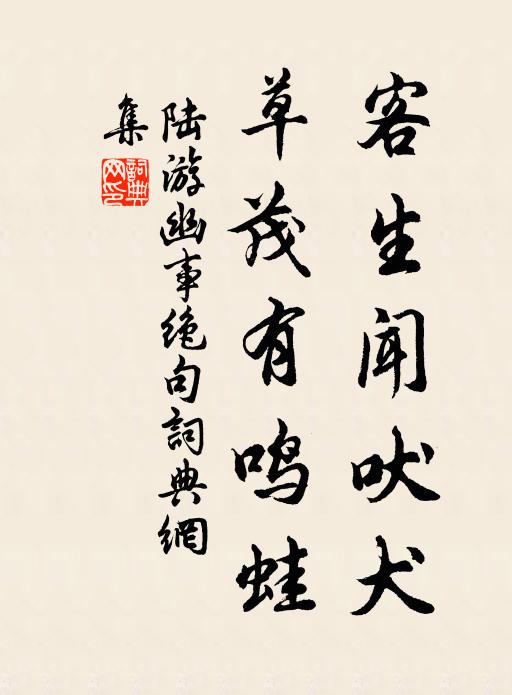 客生闻吠犬
草茂有鸣蛙
陆游幽事绝句詞典網
集
詞典
网印